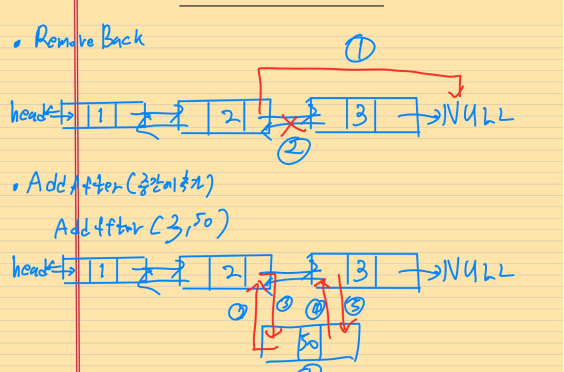 • Remove Back
①
head 1 2 3 NULL
②
• AddAfter(중간에 추가)
AddAfter(3,50)
head 1 2 3 NULL
③ ④ ⑤
50